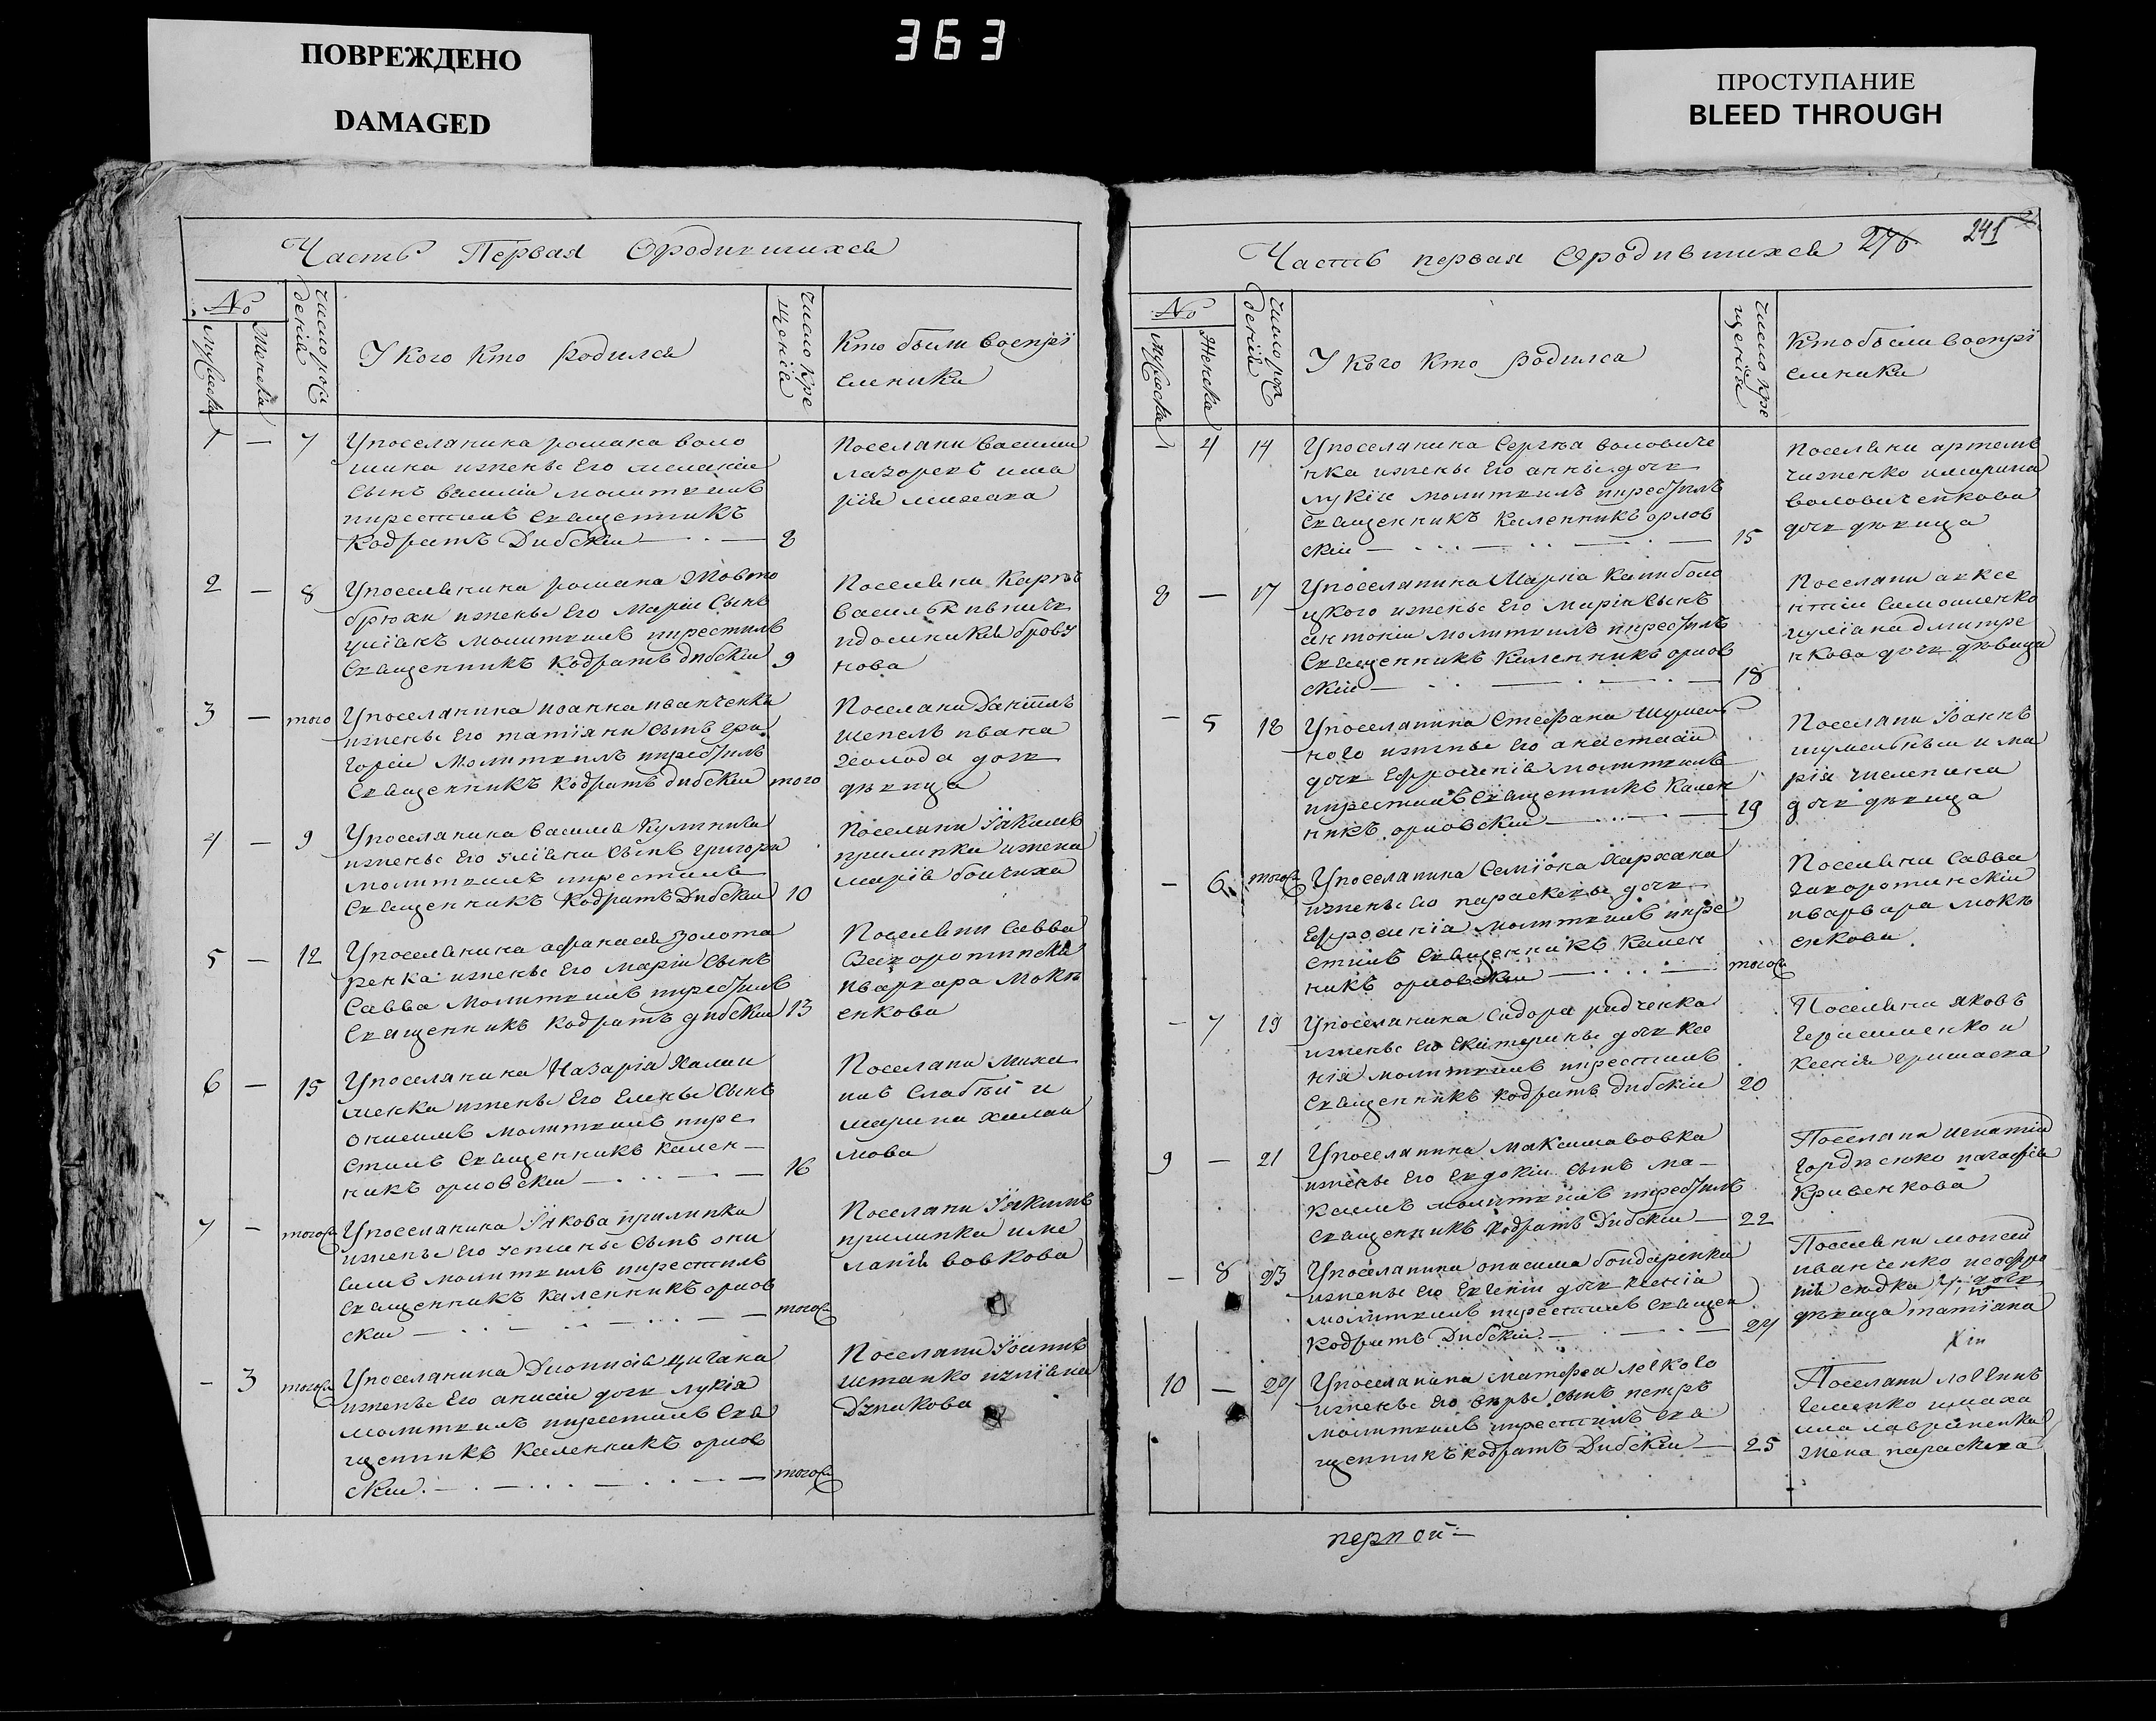 ПОВРЕЖДЕНО
DAMAGED
363
ПРОСТУПАНИЕ
BLEED THROUGH
Часть Первая Ородившихся
№
Мужска
Женска
число рож
денія
У кого Кто родился
число Кре
щенія
Кто были воспрі
емники
1 — 7 Упоселянина романа воло
шина изжены Его меланіи
Сынъ василіи молитвилъ
икрестилъ Священникъ
Кодратъ Дибскіи — 8
Поселяни василіи
лазоревъ има
рія
2 — 8 Упоселянина романа Жовто
брюхи изжены Его Маріи Сынъ
уліянъ молитвилъ икрестилъ
Священникъ Кодратъ дибскіи 9
Поселяни Карпъ
идоминикія брову
нова
3 — того Упоселянина иоанна иванченка
изжены Его татіяни Сынъ гри
горіи Молитвилъ икрестилъ
Священникъ Кодратъ дибскіи того
Поселяни Даніилъ
шепель ивана
холода дочь
дѣвица
4 — 9 Упоселянина василія Кулинича
изжены Его уліяни Сынъ григори
молитвилъ икрестилъ
Священникъ Кодратъ Дибскіи 10
Поселяни Іякимъ
прилипка ижена
марія
5 — 12 Упоселянина афанасія Золота
ренка изжены Его Маріи Сынъ
Савва Молитвилъ икрестилъ
Священникъ Кодратъ дибскіи 13
Поселяни Савва
иварвара Мокѣ
енкова
6 — 15 Упоселянина Назарія Халаи
менка изжены Его Елены Сынъ
онисимъ молитвилъ икре
стилъ Священникъ Кален—
никъ орловскіи — 16
Поселяни Михаи
илъ Слабкіи и
марина халаи
мова
7 — тогожъ Упоселянина Іякова прилипка
изжены Его устины Сынъ они
симъ молитвилъ икрестилъ
Священникъ Каленникъ орлов
скіи — тогожъ
Поселяни Іякимъ
прилипка име
ланія вовкова
— 3 тогожъ Упоселянина Дионисія цигана
изжены Его анисіи дочь лукія
молитвилъ икрестилъ Свя
щенникъ Каленникъ орлов
скіи. — тогожъ
Поселяни Іоаннъ
иуліяна
Часть первая Ородившихся 276 241
№
мужска
Женска
число рож
денія
У кого Кто родился
число Кре
щенія
Кто были воспрі
емники
— 4 14 Упоселянина Сергѣя воловиче
нка изжены Его анны дочь
лукіи молитвилъ икрестилъ
Священникъ Каленникъ орлов
скіи — 15
Поселяни артемъ
имарина
воловиченкова
дочь дѣвица
8 — 17 Упоселянина Марка
цкого изжены Его Маріи Сынъ
антоніи молитвилъ икрестилъ
Священникъ Каленникъ орлов
скіи — 18
Поселяни авксе
нтіи Самоиленко
иуліана дмитре
нкова дочь дѣвица
— 5 18 Упоселянина Стефана Шумель
ного изжены Его анастасіи
дочь Ефросинія молитвилъ
икрестилъ Священникъ Кален
никъ орловскіи — 19
Поселяни Іоаннъ
шумельныи има
рія
дочь дѣвица
— 6 тогожъ Упоселянина Семіона
изжены Его параскевы дочь
Ефросинія молитвилъ икре
стилъ Священникъ Кален
никъ орловскіи — тогожъ
Поселяни Савва
иварвара мокѣ
енкова.
— 7 19 Упоселянина Сидора радченка
изжены Его Екатерины дочь Ксе
нія молитвилъ икрестилъ
Священникъ Кодратъ дибскіи 20
Поселяни яковъ
Герасименко и
Ксенія
9 — 21 Упоселянина Максима вовка
изжены Его Евдокіи Сынъ ма—
ксимъ молитвилъ икрестилъ
Священникъ Кодратъ Дибскіи — 22
Поселяни игнатіи
Гордѣенко иагафія
Кривенкова
— 8 23 Упоселянина онисима бондаренка
изжены Его Евгеніи дочь Ксенія
молитвилъ икрестилъ Священ
Кодратъ Дибскіи. — 24
Поселяни моисеи
иванченко
дочь
дѣвица татіана
10 — 24 Упоселянина матфея легкого
изжены Его Сынъ петръ
молитвилъ икрестилъ Свя
щенникъ Кодратъ Дибскіи — 25
Поселяни логвинъ
жена параскева
первой —